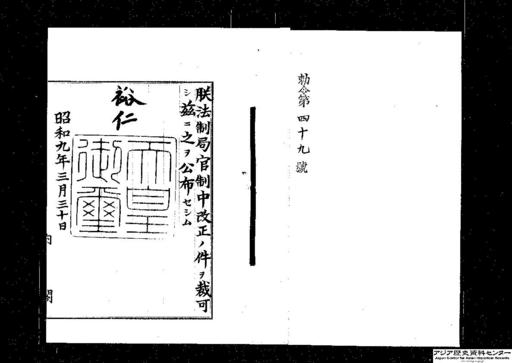 勅令第四十九號
朕法制局官制中改正ノ件ヲ裁可
シ茲ニ之ヲ公布セシム
裕仁
天皇御璽
昭和九年三月三十日
内閣
アジア歴史資料センター
Japan Center for Asian Historical Records